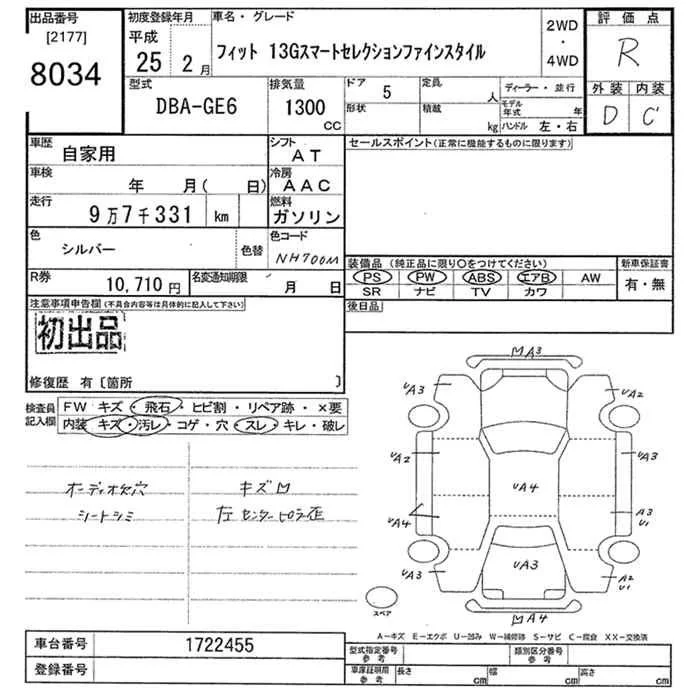 出品番号 初度登録年月 車名・グレード 評価点
[2177] 平成 2WD
8034 25 2月 フィット 13Gスマートセレクションファインスタイル ・ R
4WD
型式 排気量 ドア 5 定員 人 ディーラー・並行 外装 内装
DBA-GE6 1300 CC 形状 積載 kg モデル年式 年 D C'
ハンドル 左・右
車歴 自家用 シフト AT セールスポイント(正常に機能するものに限ります)
車検 年 月( 日) 冷房 AAC
走行 9万7千331 km 燃料 ガソリン
色 シルバー 色替 色コード NH700M
装備品 (純正品に限り〇をつけてください) 新車保証書
R券 10,710円 名変通知期限 月 日 PS PW ABS エアB AW 有・無
SR ナビ TV カワ
注意事項申告欄(不具合内容等は具体的に記入して下さい) 後日品
初出品
修復歴 有〔箇所 〕
検査員記入欄 FW キズ・飛石・ヒビ割・リペア跡・×要
内装 キズ・汚レ・コゲ・穴・スレ・キレ・破レ
オーディオ欠穴 キズ凹
シートシミ 左センターピラー歪
凹A3
UA3 UA2
UA2 UA3
UA4
UA4 A3 U1
UA3
UA3 A2 U1
スペア 凹A4
A-キズ E-エクボ U-凹み W-補修跡 S-サビ C-腐食 XX-交換済
車台番号 1722455 型式指定番号 参考 類別区分番号 参考
登録番号 車庫証明用 参考 長さ cm 幅 cm 高さ cm